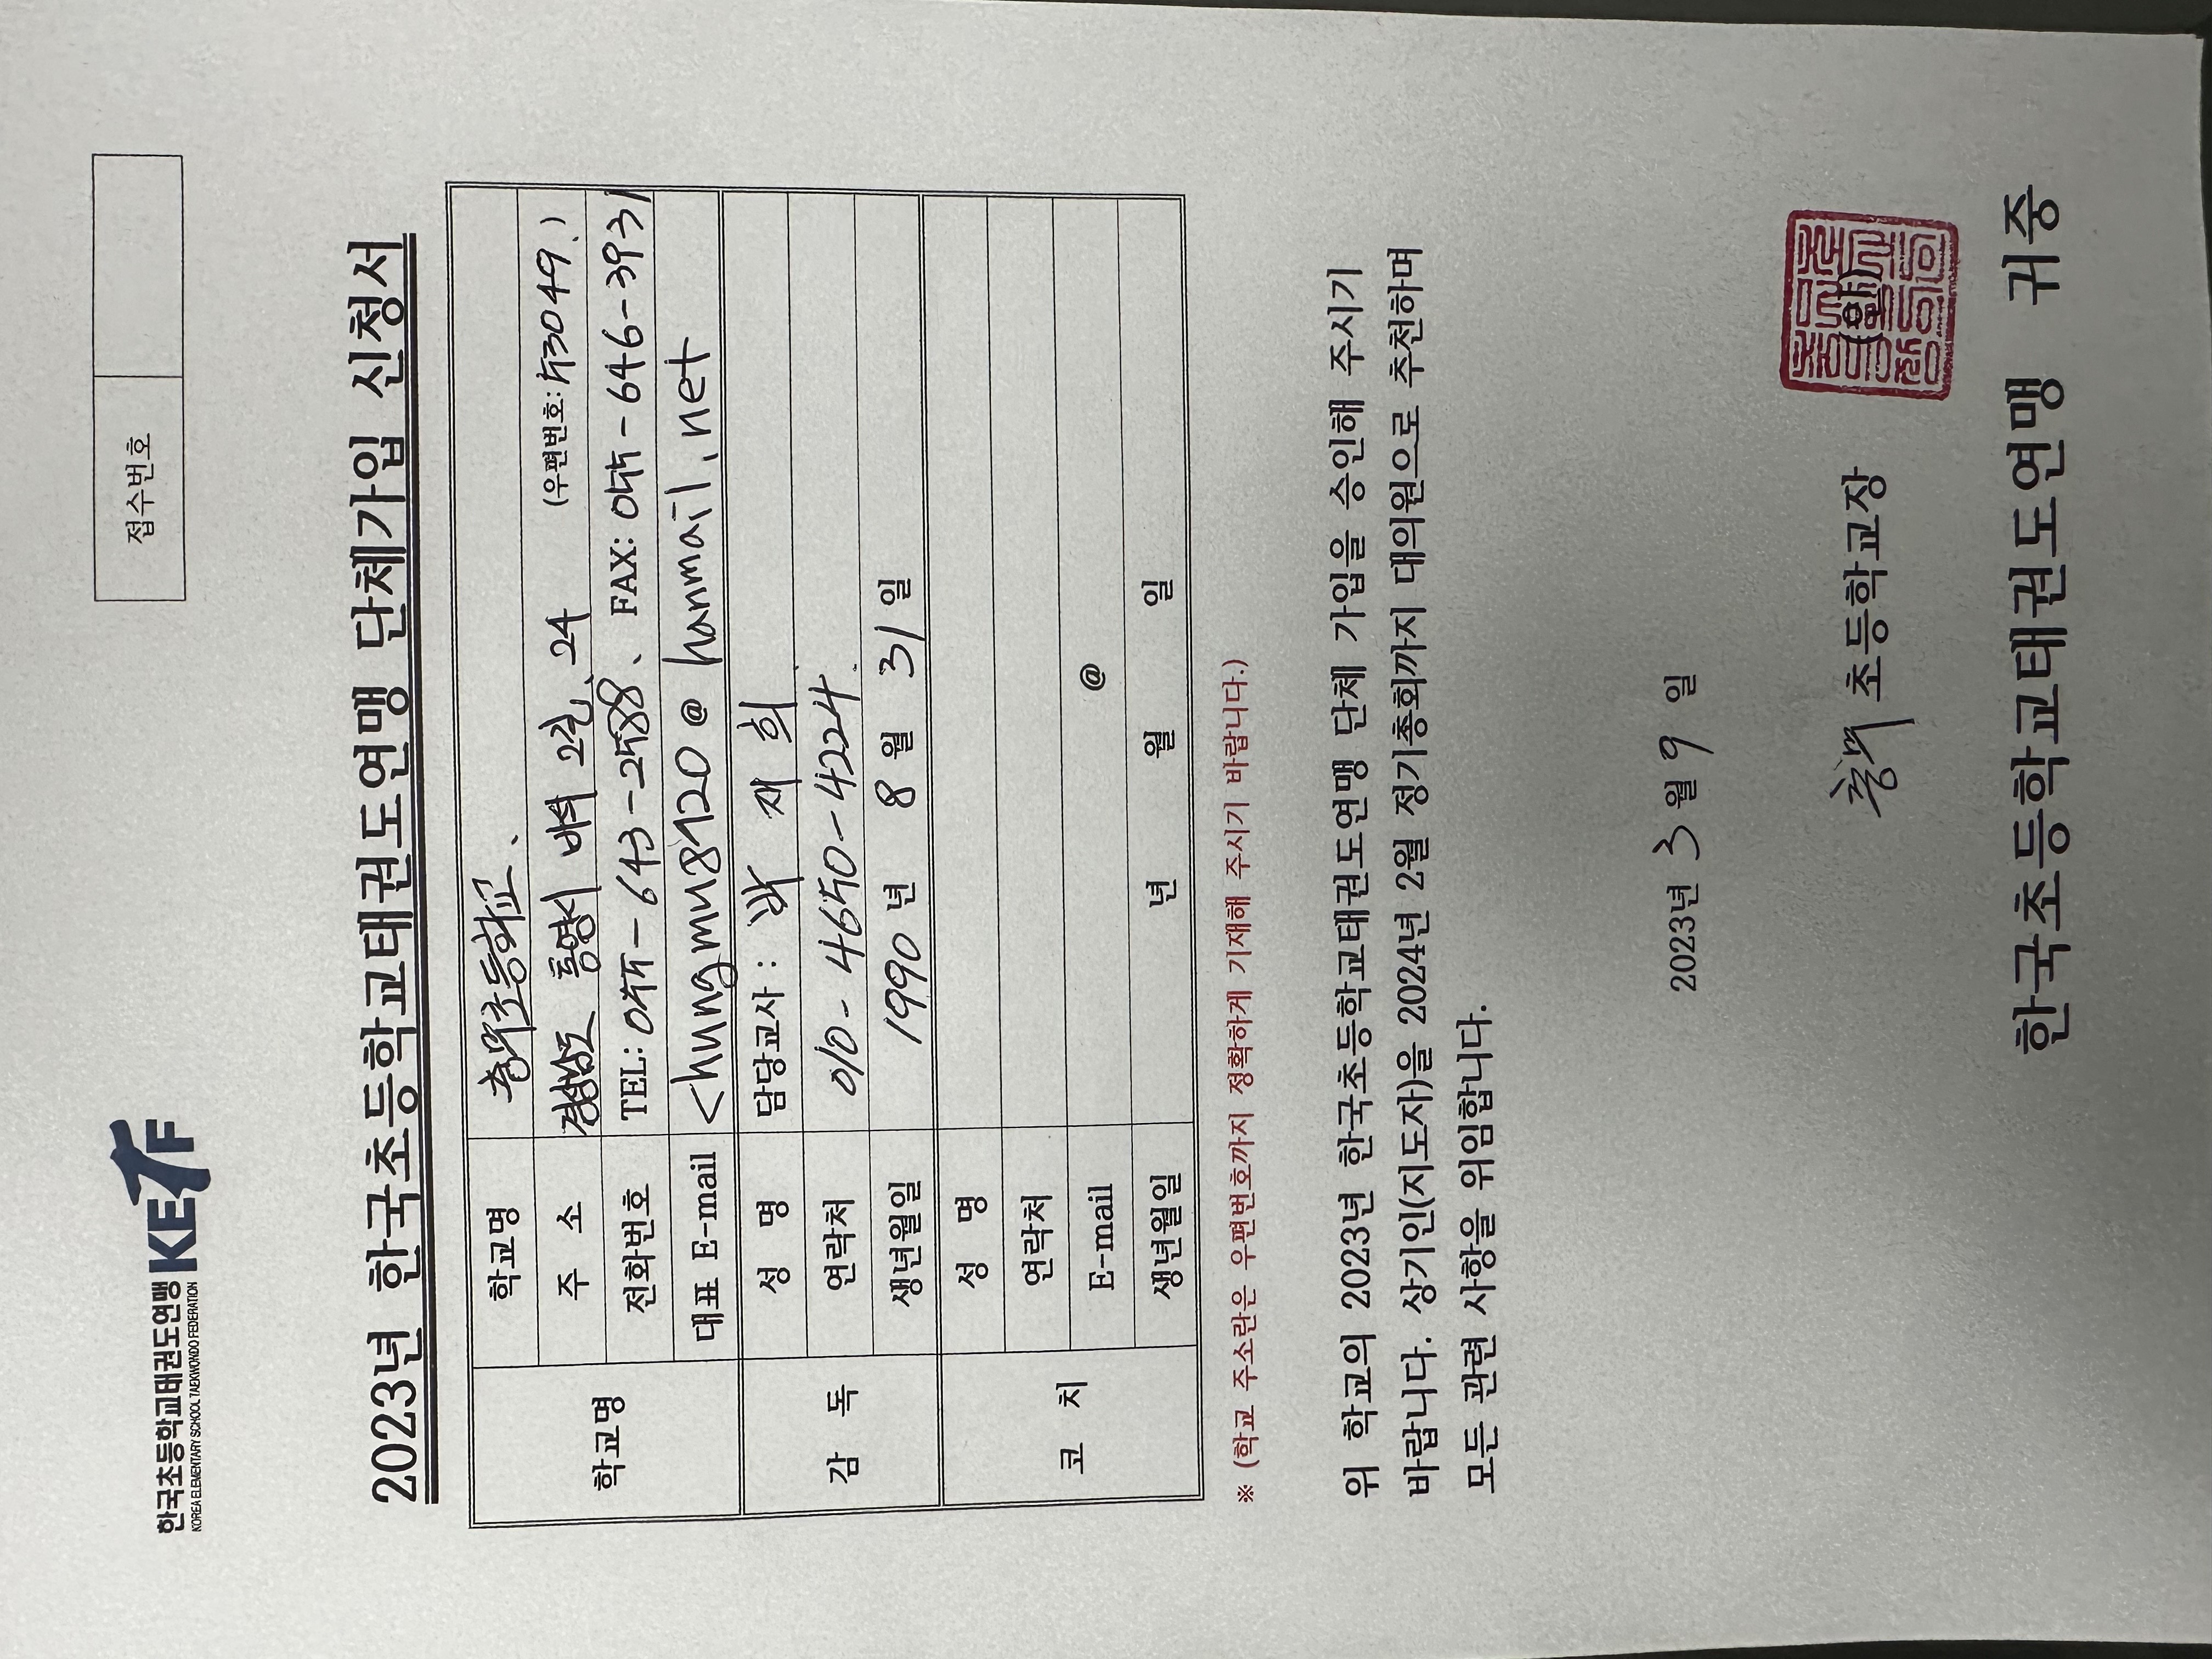 한국초등학교태권도연맹 KETF
KOREA ELEMENTARY SCHOOL TAEKWONDO FEDERATION
접수번호
2023년 한국초등학교태권도연맹 단체가입 신청서
학교명
학교명 충무초등학교.
주 소 경상남도 통영시 바석 2길, 24 (우편번호: 53049.)
전화번호 TEL: 055-643-2588, FAX: 055-646-3931
대표 E-mail chungmu8520 @ hanmail.net
감 독
성 명 담당교사 : 박 재 희
연락처 010-4650-4224
생년월일 1990 년 8 월 31 일
코 치
성 명
연락처
E-mail @
생년월일 년 월 일
※ (학교 주소란은 우편번호까지 정확하게 기재해 주시기 바랍니다.)
위 학교의 2023년 한국초등학교태권도연맹 단체 가입을 승인해 주시기
바랍니다. 상기인(지도자)을 2024년 2월 정기총회까지 대의원으로 추천하며
모든 관련 사항을 위임합니다.
2023년 3 월 9 일
충무 초등학교장 (인)
한국초등학교태권도연맹 귀중